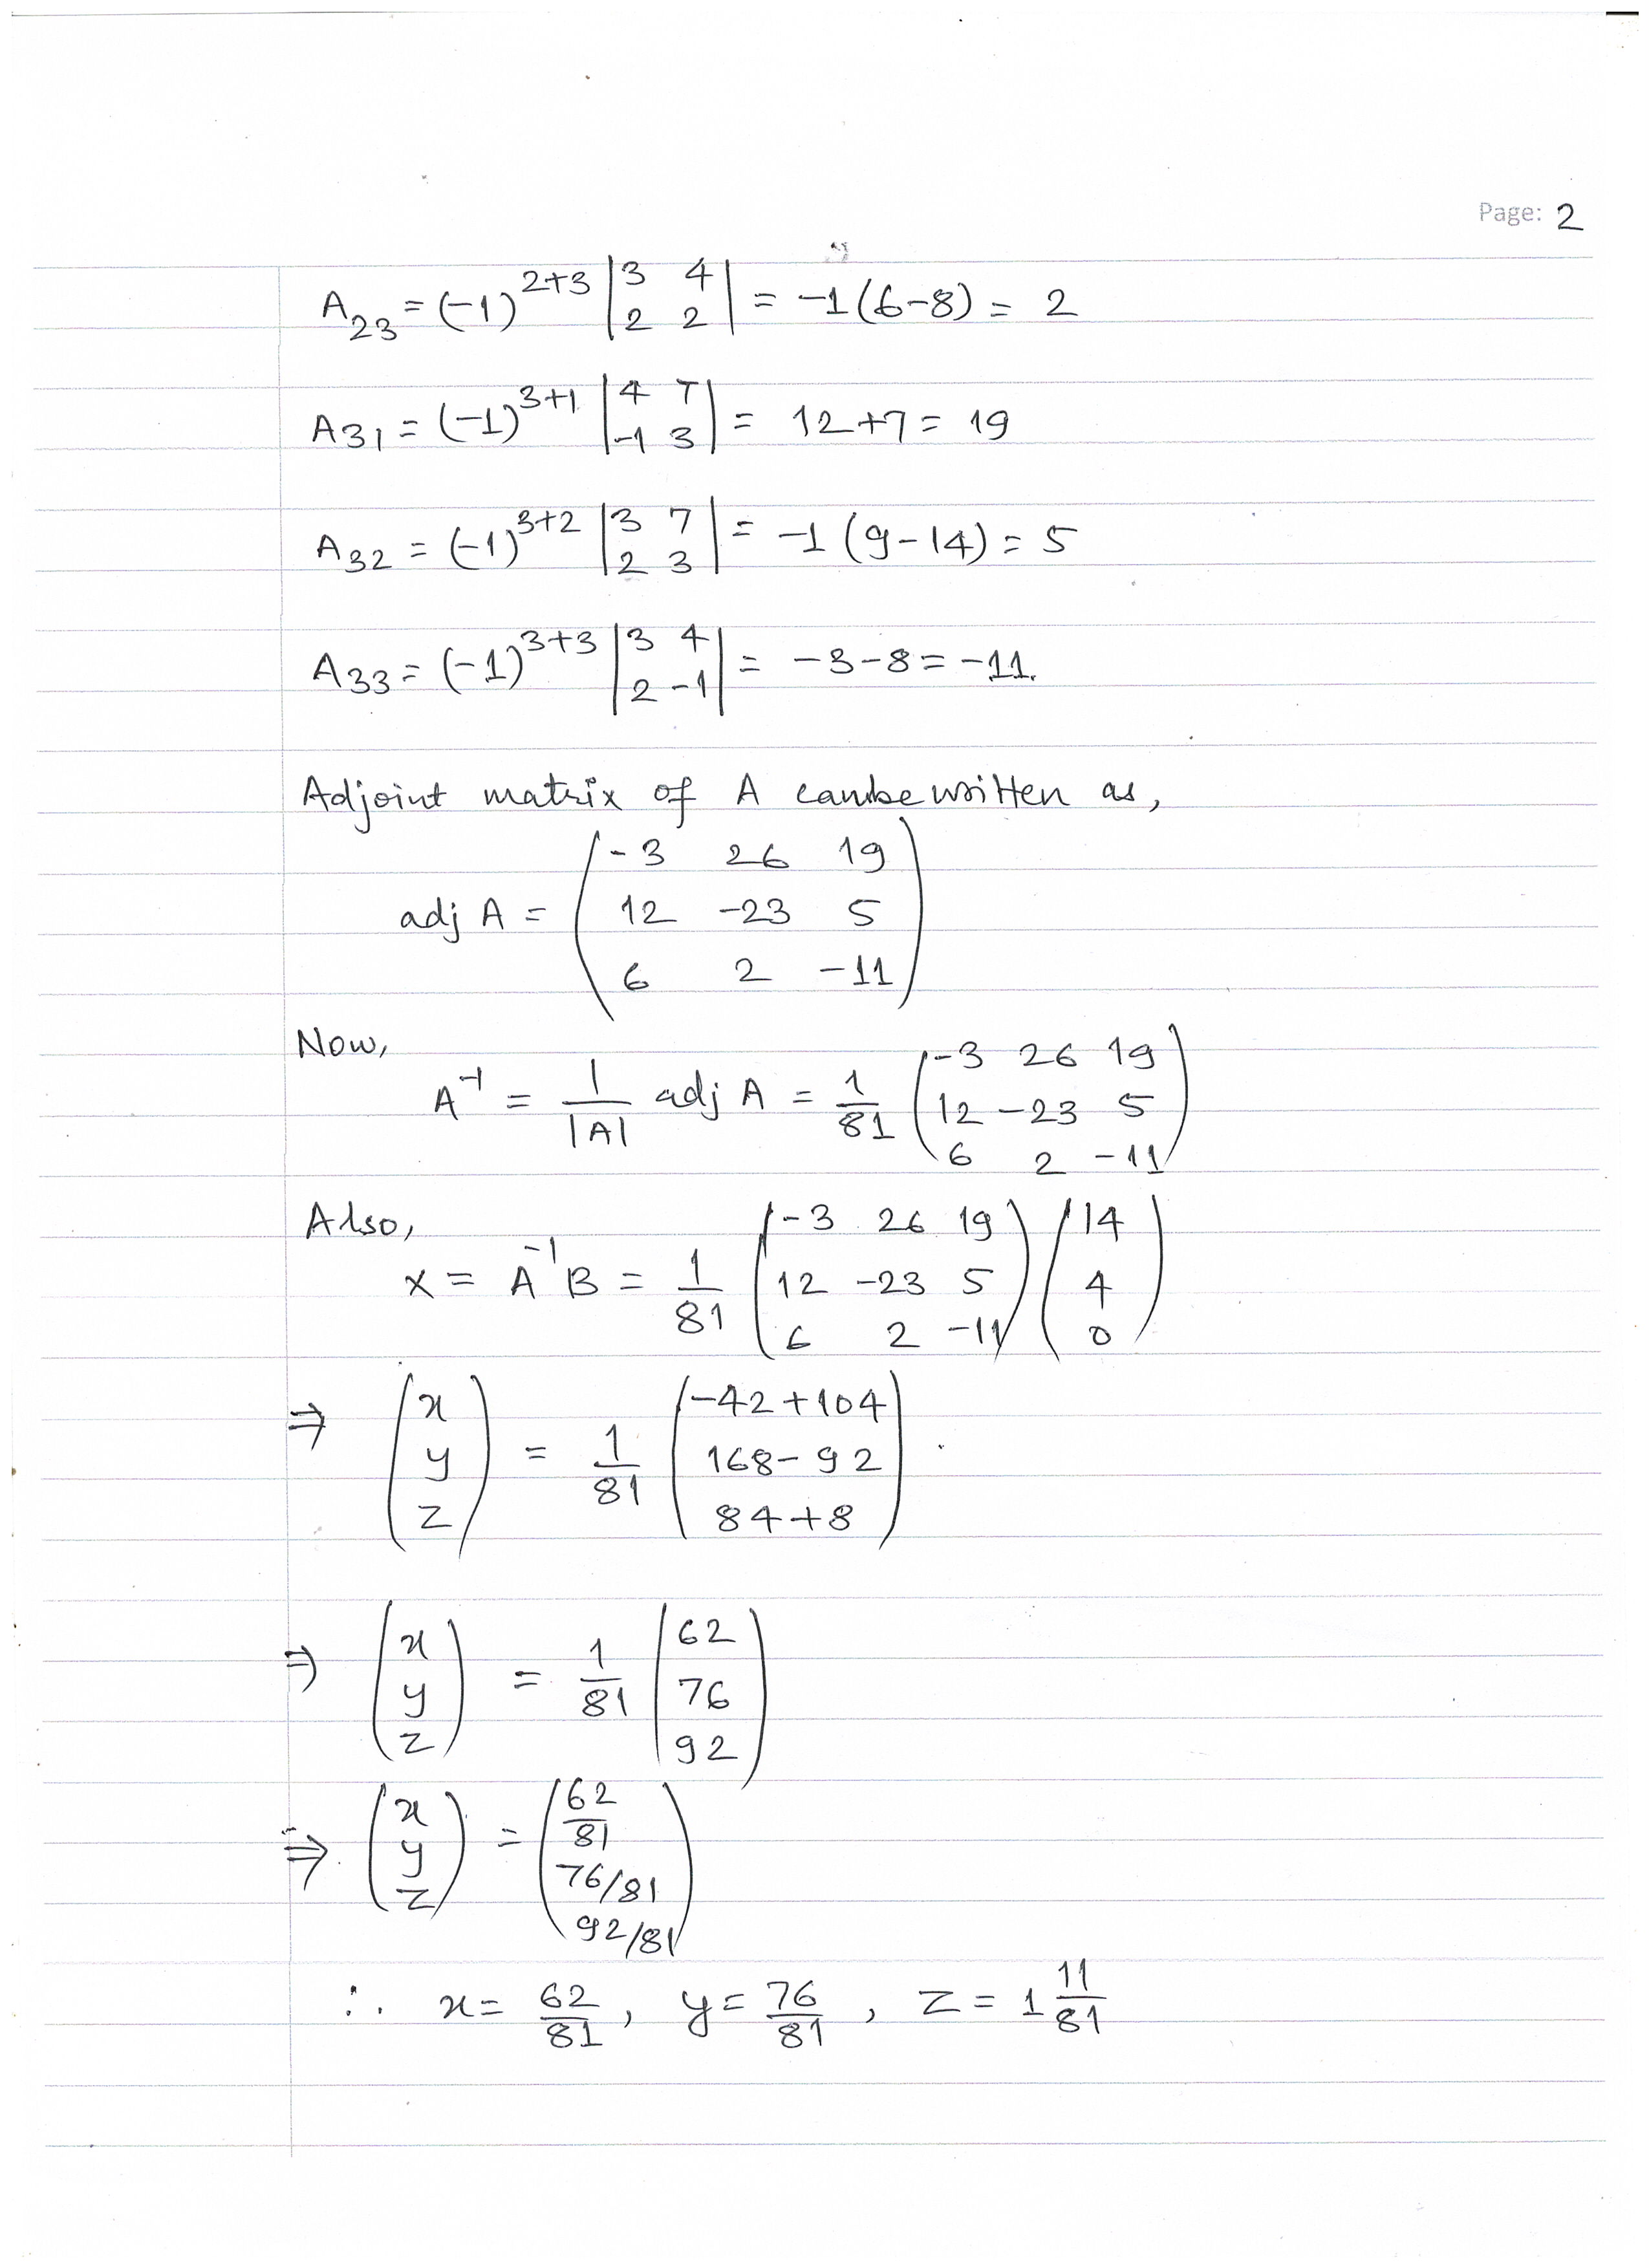 Page: 2
A₂₃ = (-1)²⁺³ |3 4; 2 2| = -1(6-8) = 2
A₃₁ = (-1)³⁺¹ |4 7; -1 3| = 12+7 = 19
A₃₂ = (-1)³⁺² |3 7; 2 3| = -1 (9-14) = 5
A₃₃ = (-1)³⁺³ |3 4; 2 -1| = -3-8 = -11.
Adjoint matrix of A can be written as,
adj A = (-3 26 19; 12 -23 5; 6 2 -11)
Now,
A⁻¹ = 1/|A| adj A = 1/81 (-3 26 19; 12 -23 5; 6 2 -11)
Also,
X = A⁻¹B = 1/81 (-3 26 19; 12 -23 5; 6 2 -11) (14; 4; 0)
⇒ (x; y; z) = 1/81 (-42+104; 168-92; 84+8)
⇒ (x; y; z) = 1/81 (62; 76; 92)
⇒ (x; y; z) = (62/81; 76/81; 92/81)
∴ x = 62/81, y = 76/81, z = 1 11/81